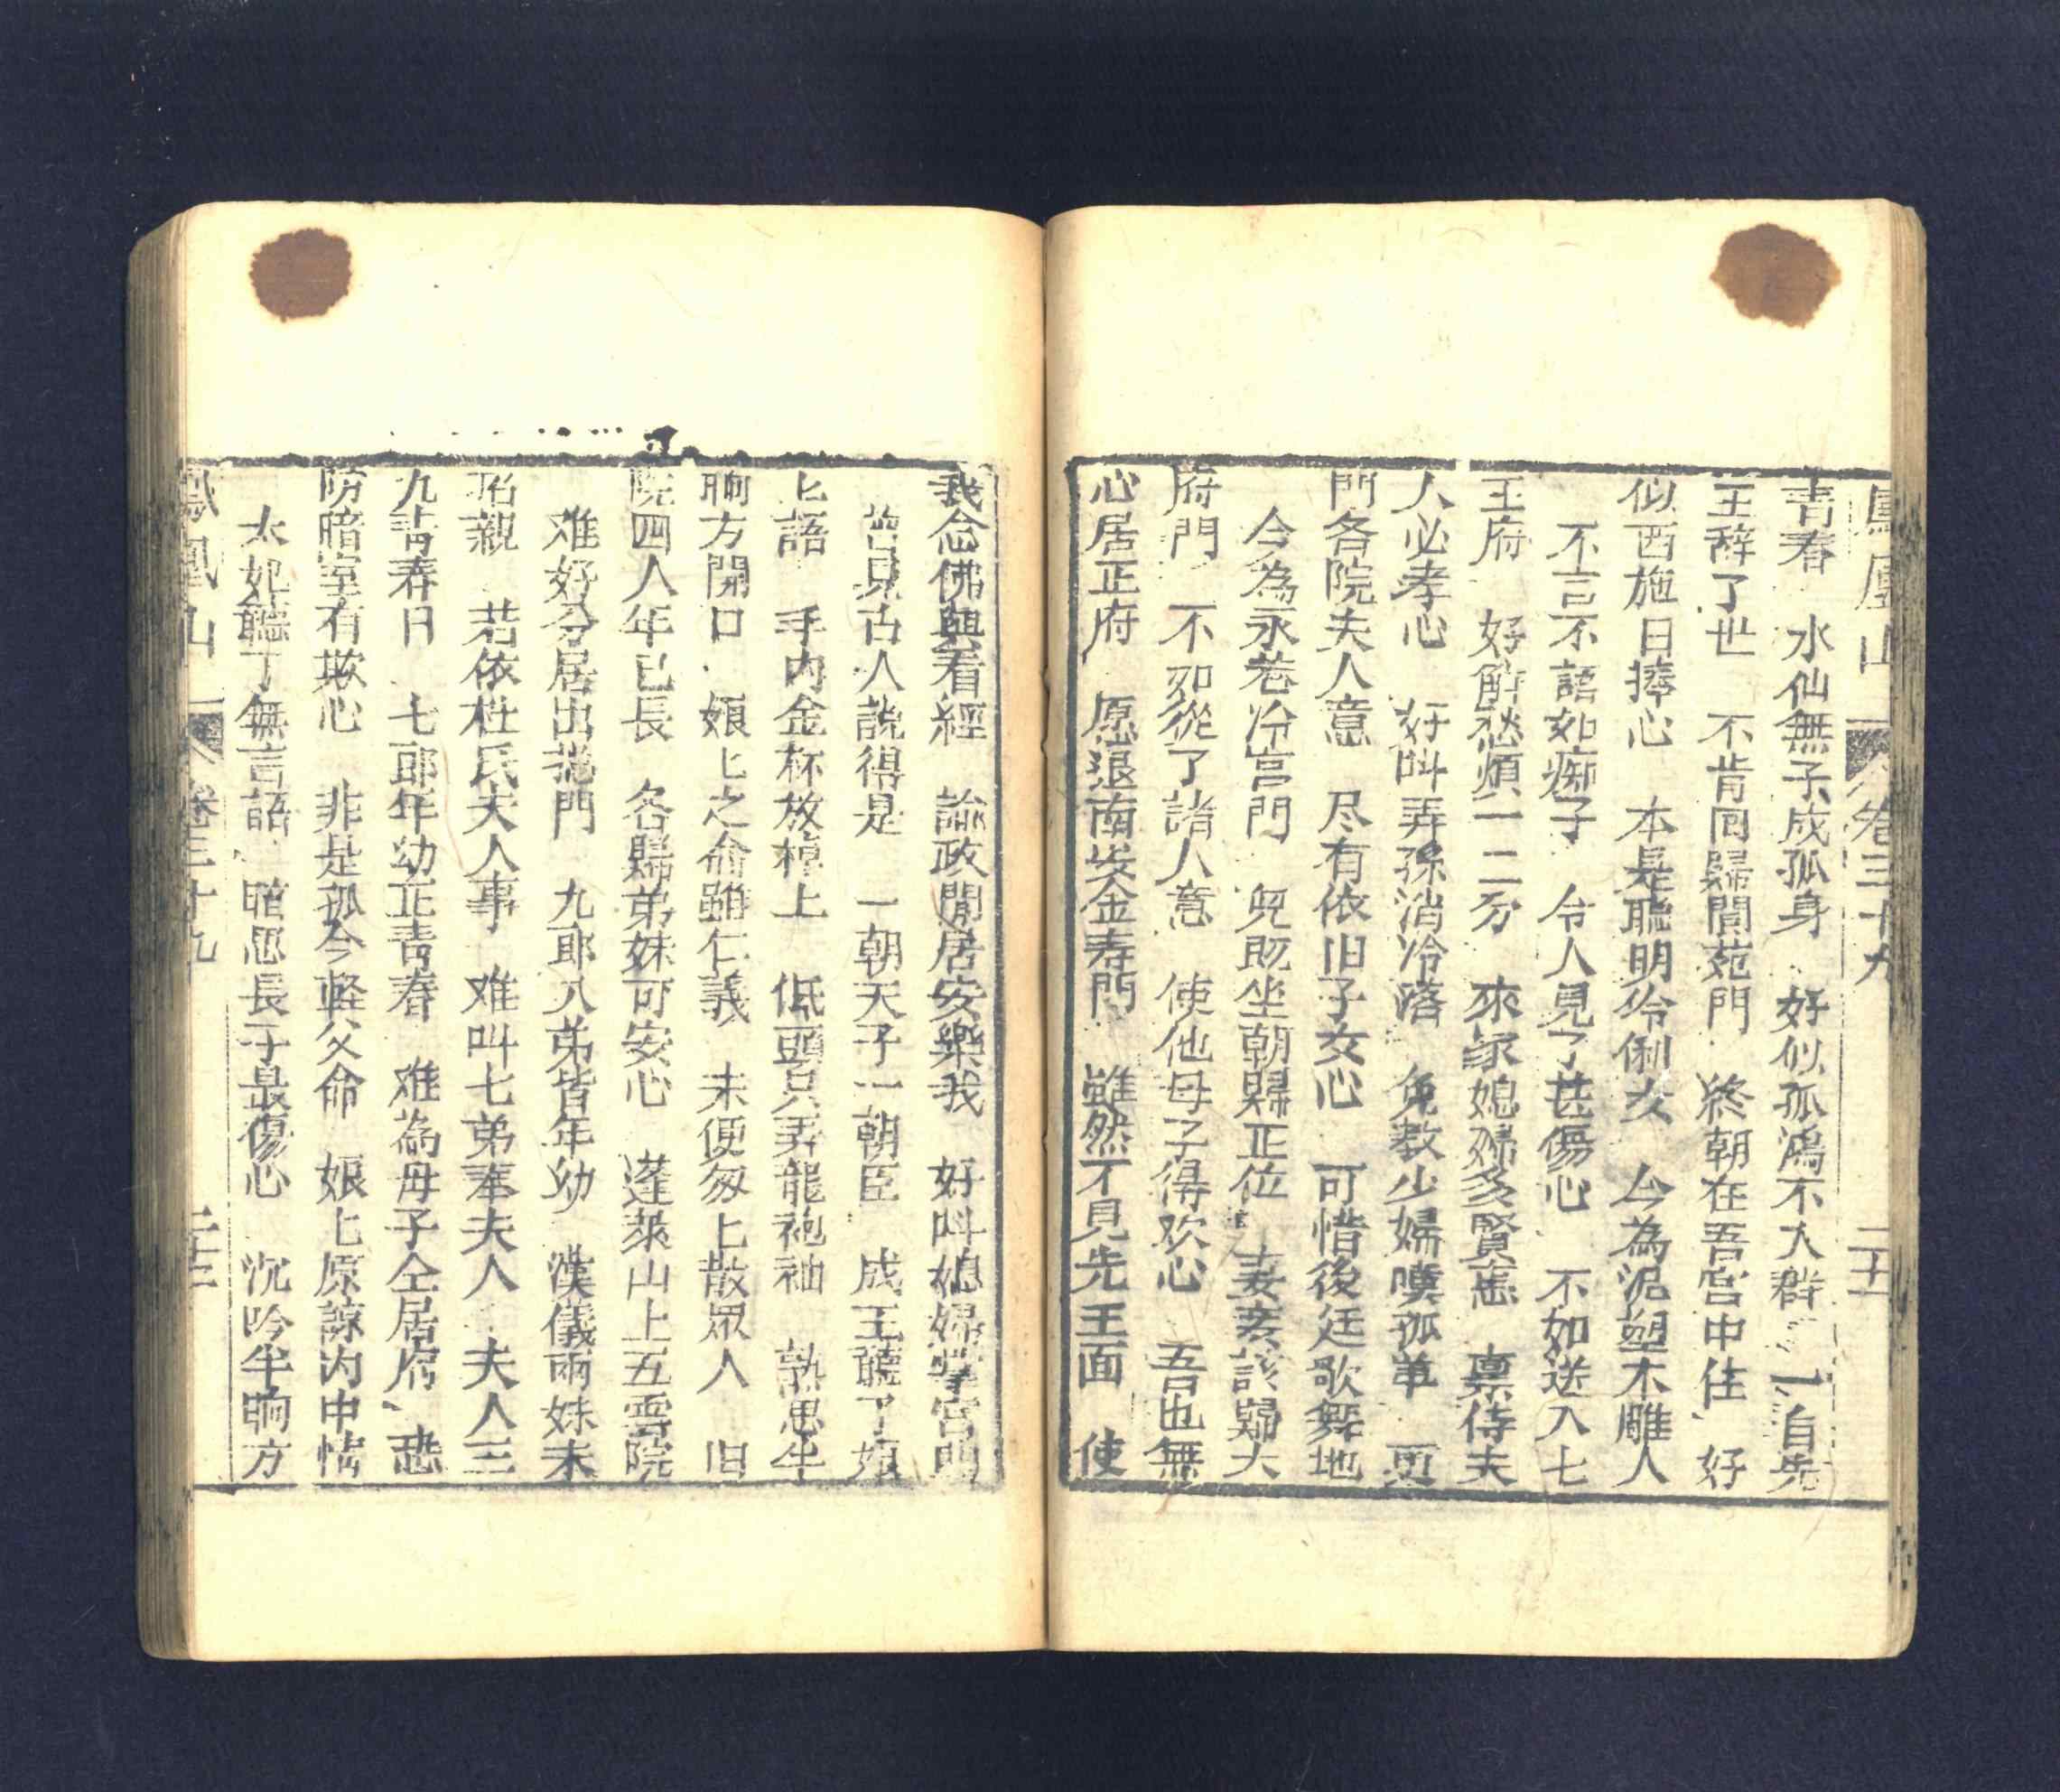 鳳凰山 卷三十九
青春 水仙無子成孤身 好似孤鴻不入群 一自先
王辭了世 不肯囘歸閬苑門 終朝在吾宮中住 好
似西施日捧心 本是聰明伶俐女 今為泥塑木雕人
不言不語如痴子 令人見了甚傷心 不如送入七
王府 好解愁煩一二分 來家媳婦多賢惠 禀侍夫
人必孝心 好叫弄孫消冷落 免教少婦嘆孤单 更
門各院夫人意 尽有依旧子女心 可惜後廷歌舞地
今為永巷冷宫門 兒既坐朝歸正位 妻妾該歸大
府門 不如從了諸人意 使他母子得欢心 吾也無
心居正府 愿退南 金寿門 雖然不見先王面 使
我念佛與看經 諭政閒居安樂我 好呌媳婦掌宮門
曽見古人說得是 一朝天子一朝臣 成王聽了娘
上語 手内金杯放棹上 低頭只弄龍袍袖 熟思半
晌方開口 娘上之命雖仁義 未便匆上散眾人 旧
院四人年已長 各歸弟妹可安心 蓬萊山上五雲院
难好分居出 門 九郎八弟皆年幼 漢儀兩妹未
招親 若依杜氏夫人事 难叫七弟奉夫人 夫人三
九青春日 七郎年幼正青春 难為母子仝居府 恐
防暗室有欺心 非是孤今軽父命 娘上原諒内中情
太妃聽了無言語 暗思長子最傷心 沉吟半晌方
鳳凰山 卷三十九 二十三